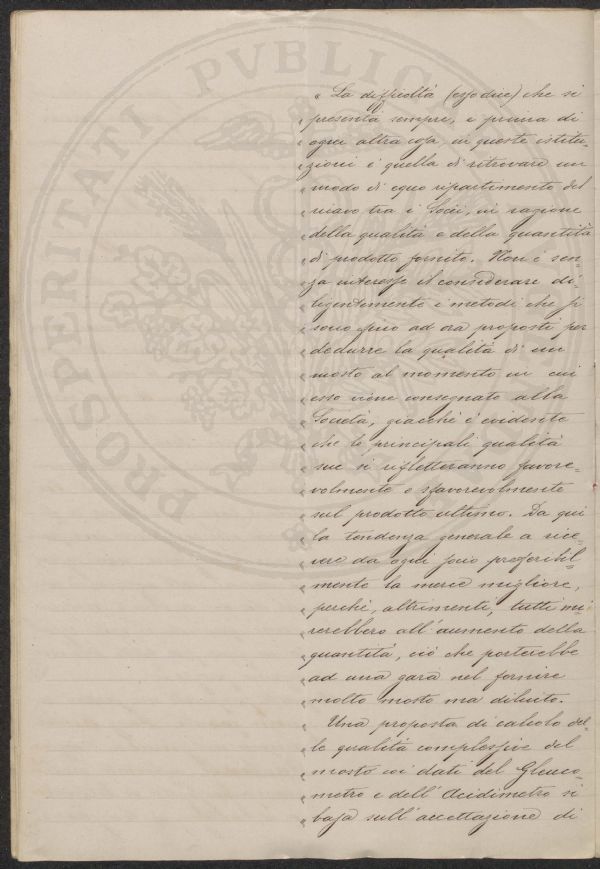 PROSPERITATI PVBLIC
« La difficoltà (esso dice) che si
« presenta sempre, e prima di
« ogni altra cosa, in queste istitu-
« zioni è quella di ritrovare un
« modo di equo ripartimento del
« ricavo tra i Socii, in ragione
« della qualità e della quantità
« di prodotto fornito. Non è sen-
« za interesse il considerare di-
« ligentemente i metodi che si
« sono fino ad ora proposti per
« dedurre la qualità di un
« mosto al momento in cui
« esso viene consegnato alla
« Società, giacchè è evidente
« che le principali qualità
« sue si rifletteranno favore-
« volmente o sfavorevolmente
« sul prodotto ultimo. Da qui
« la tendenza generale a rice-
« vere da ogni socio preferibil-
« mente la merce migliore,
« perchè, altrimenti, tutti mi-
« rerebbero all'aumento della
« quantità, ciò che porterebbe
« ad una gara nel fornire
« molto mosto ma diluito.
« Una proposta di calcolo del-
« le qualità complessive del
« mosto coi dati del Gleuco-
« metro e dell'Acidimetro si
« basa sull'accettazione di